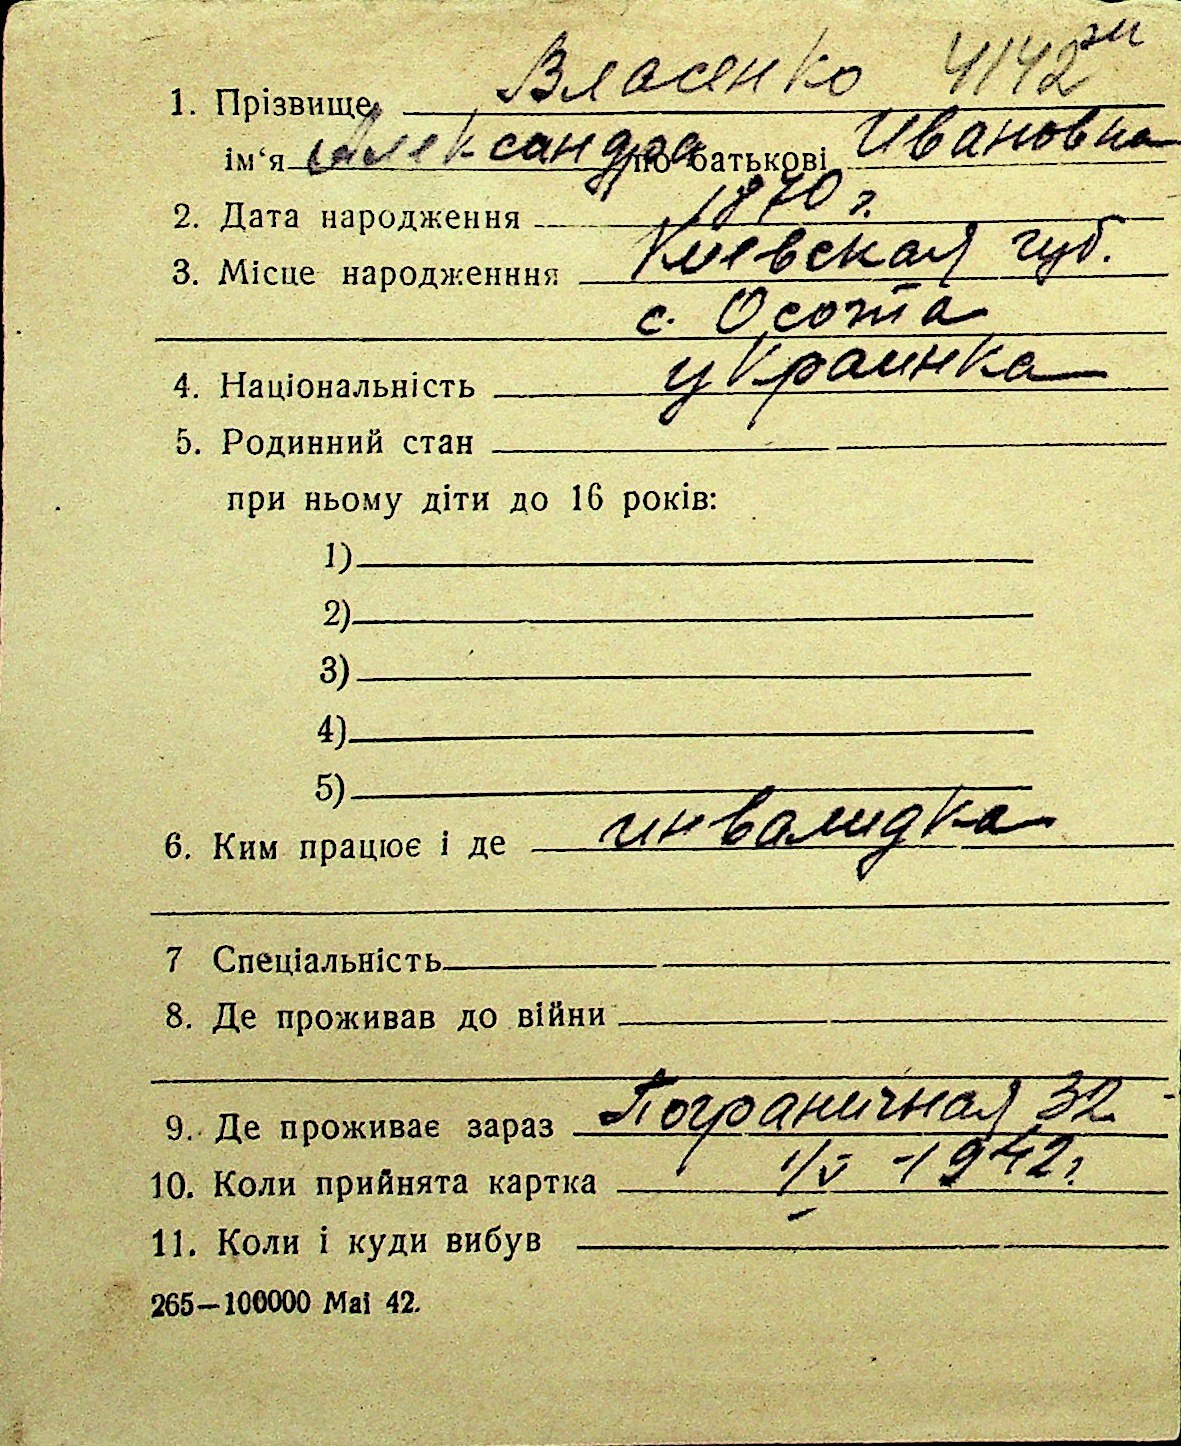 1. Прізвище Власенко 4142
ім‘я Александра по батькові Ивановна
2. Дата народження 1870 г.
3. Місце народженння Киевская губ.
с. Осота
4. Національність украинка
5. Родинний стан
при ньому діти до 16 років:
1)
2)
3)
4)
5)
6. Ким працює і де инвалидка
7 Спеціальність
8. Де проживав до війни
9. Де проживає зараз Пограничная 32
10. Коли прийнята картка 1/V - 1942 г.
11. Коли і куди вибув
265—100000 Mai 42.